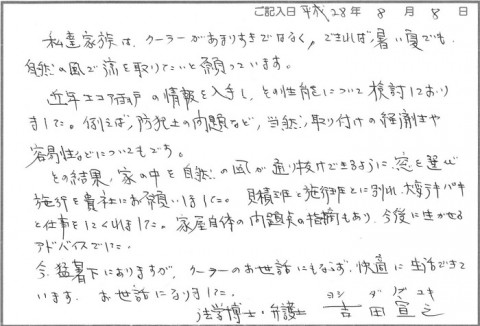 ご記入日 平成 28年 8月 8日
私達家族は、クーラーがあまりすきではなく、できれば暑い夏でも、
自然の風で涼を取りたいと願っています。
近年エコア雨戸の情報を入手し、その性能について検討しており
ました。例えば、防犯上の問題など、当然、取り付けの経済性や
容易性などについてもです。
その結果、家の中を自然の風が通り抜けできるように、窓を選び
施行を貴社にお願いしました。見積雄と施行雄とに別れ、大変テキパキ
と仕事をしてくれました。家屋自体の問題点の指摘もあり、今後に生かせる
アドバイスでした。
今、猛暑下にありますが、クーラーのお世話にもならず、快適に生活できて
います。お世話になりました。
ヨシ ダ ノブ ユキ
法学博士・弁護士 吉田宣之